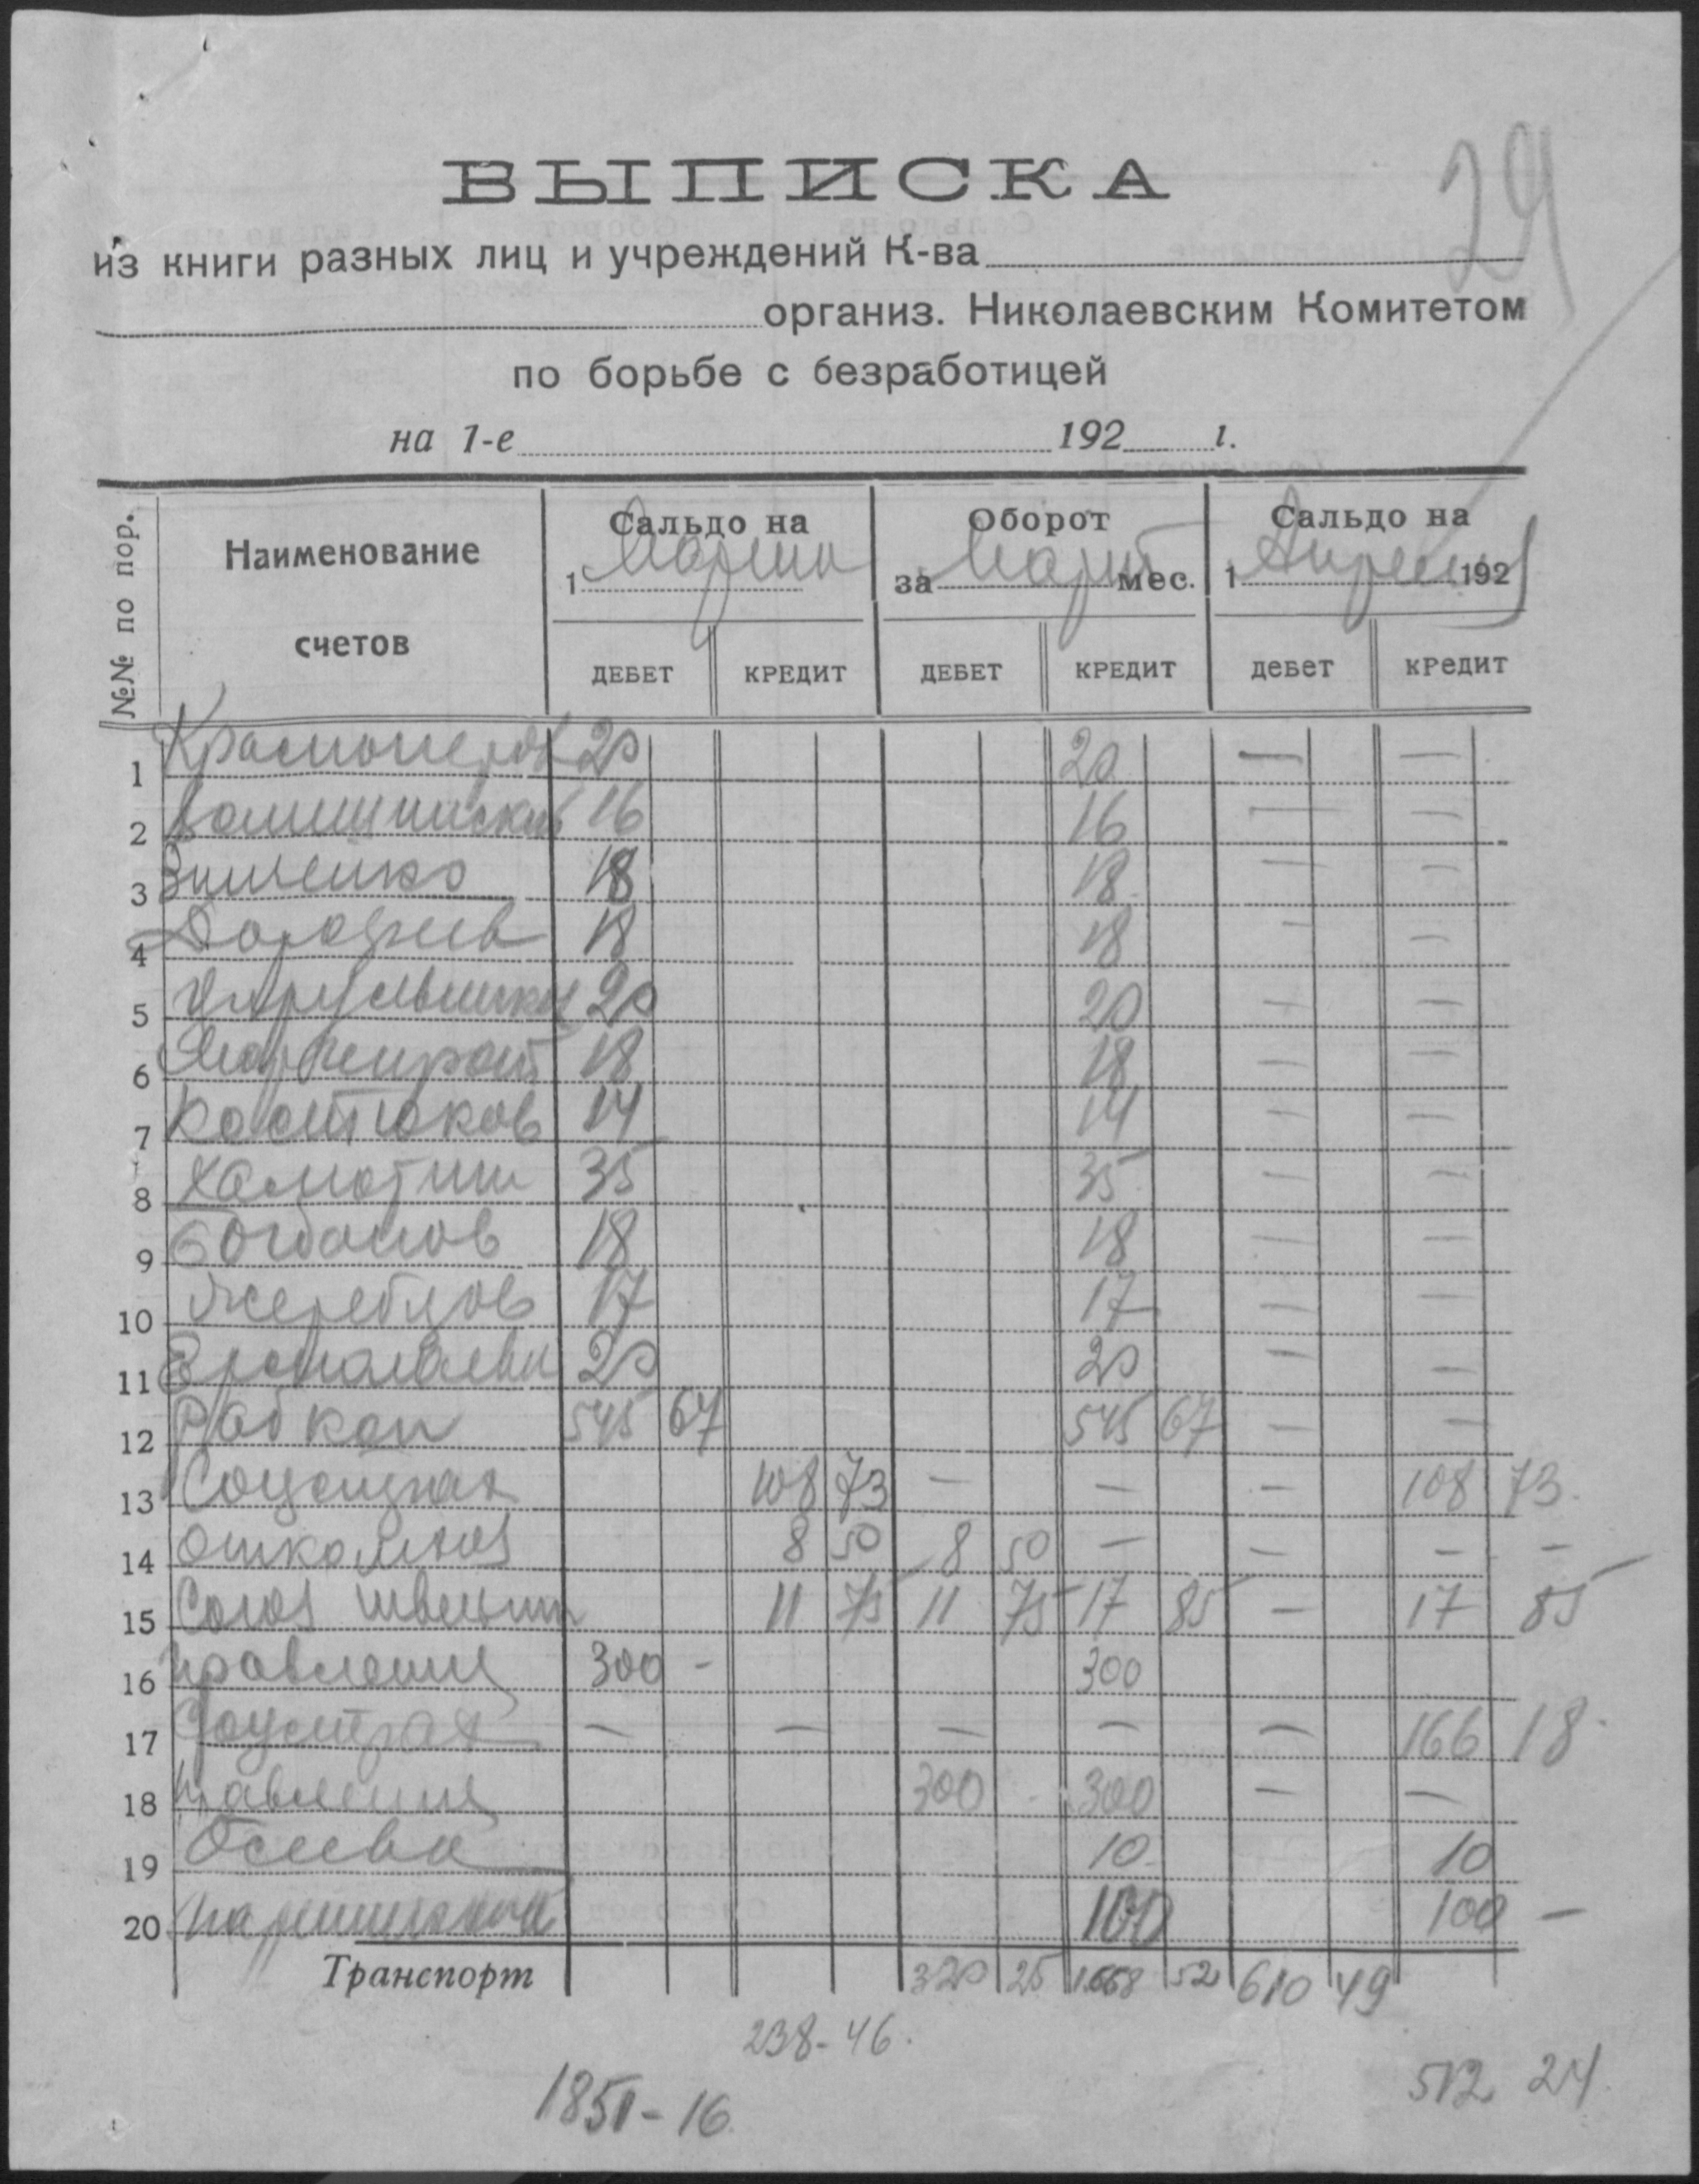 29
ВЫПИСКА
из книги разных лиц и учреждений К-ва
организ. Николаевским Комитетом
по борьбе с безработицей
на 1-е 192 г.
№№ по пор.
Наименование счетов
Сальдо на 1 Марта
Оборот за Март мес.
Сальдо на 1 Апреля 192
ДЕБЕТ КРЕДИТ ДЕБЕТ КРЕДИТ дебет кредит
1 Красноперов 20 20 — —
2 16 16 — —
3 Зинченко 18 18 — —
4 18 18 — —
5 20 20 — —
6 18 18 — —
7 Костюков 14 14 — —
8 35 35 — —
9 Богданов 18 18 — —
10 Жеребцов 17 17 — —
11 20 20 — —
12 Рабкоп 545 67 545 67 — —
13 Соцстрах 108 73 — — — 108 73
14 8 50 8 50 — — — —
15 Союз 11 75 11 75 17 85 — 17 85
16 Правление 300 - 300
17 Соцстрах — — — — — 166 18
18 Правление 300 300 — —
19 Осиева 10 10
20 100 100 —
Транспорт 320 25 1668 52 610 49
238-46.
1851-16
512 24